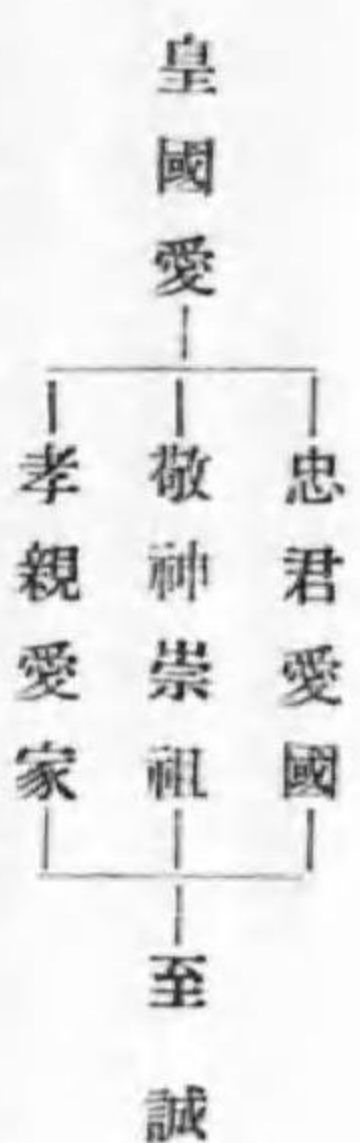 皇國愛
忠君愛國
敬神崇祖
孝親愛家
至誠